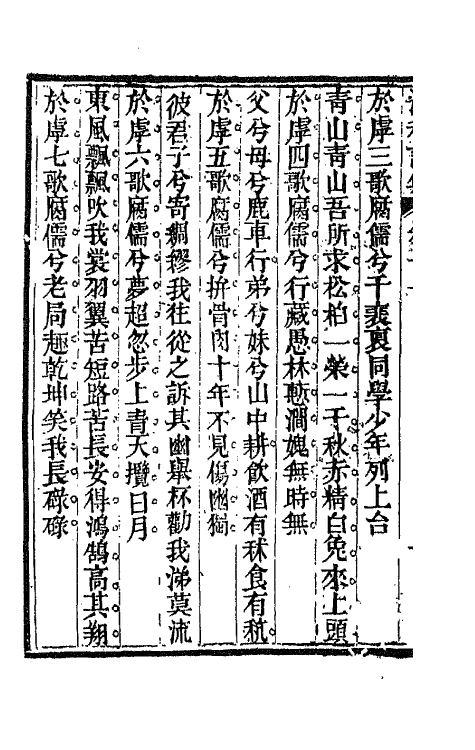 於虖三歌腐儒兮千裘夏同學少年列上台
靑山靑山吾所求松柏一榮一千秋赤精白兔來上頭
於虖四歌腐儒兮行藏愚林慙澗媿無時無
父兮母兮鹿車行弟兮妹兮山中耕飮酒有秫食有秔
於虖五歌腐儒兮拚骨肉十年不見傷幽獨
彼君子兮寄綢繆我往從之訴其幽舉杯勸我涕莫流
於虖六歌腐儒兮夢超忽步上靑天攬日月
東風飄飄吹我裳羽翼苦短路苦長安得鴻鵠高其翔
於虖七歌腐儒兮老局趣乾坤笑我長碌碌